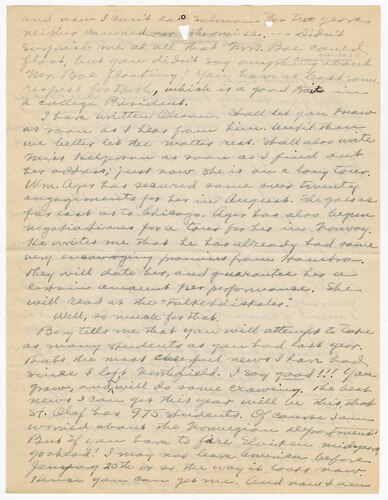 and now I can't eat salmon for two years
neither canned nor otherwise. -- Didn't
surprise me at all that Mrs. Boe could
float, but you didn't say anything about
Mr. Boe floating! You have at least some
respect for truth, which is a good trait in
a College President.
I have written Oleson. Shall let you know
as soon as I hear from him. Until then
we better let the matter rest. Shall also write
Miss as soon as I find out
her address; just now she is on a long tour.
Wm. Ager has secured some over twenty
engagements for her in August. She goes as
far east as to Chicago. Ager has also begun
negotiations for a tour for her in Norway.
He writes me that he has already had some
very encouraging promises from
they will date her, and guarantee her a
certain amount per performance. She
will read at the "
Well, so much for that.
Boy tells me that you will attempt to take
as many students as you had last year.
That's the most cheerful news I have had
since I left Northfield. I say good!!! You
grow, and I will do some crowing. The best
news I can get this year will be this that
St. Olaf has 975 students. Of course I am
worried about the Norwegian department!
But if you have to fire
go ahead! I may not leave America before
January 20th or so the way it looks now.
Hence you can get me. And now I am